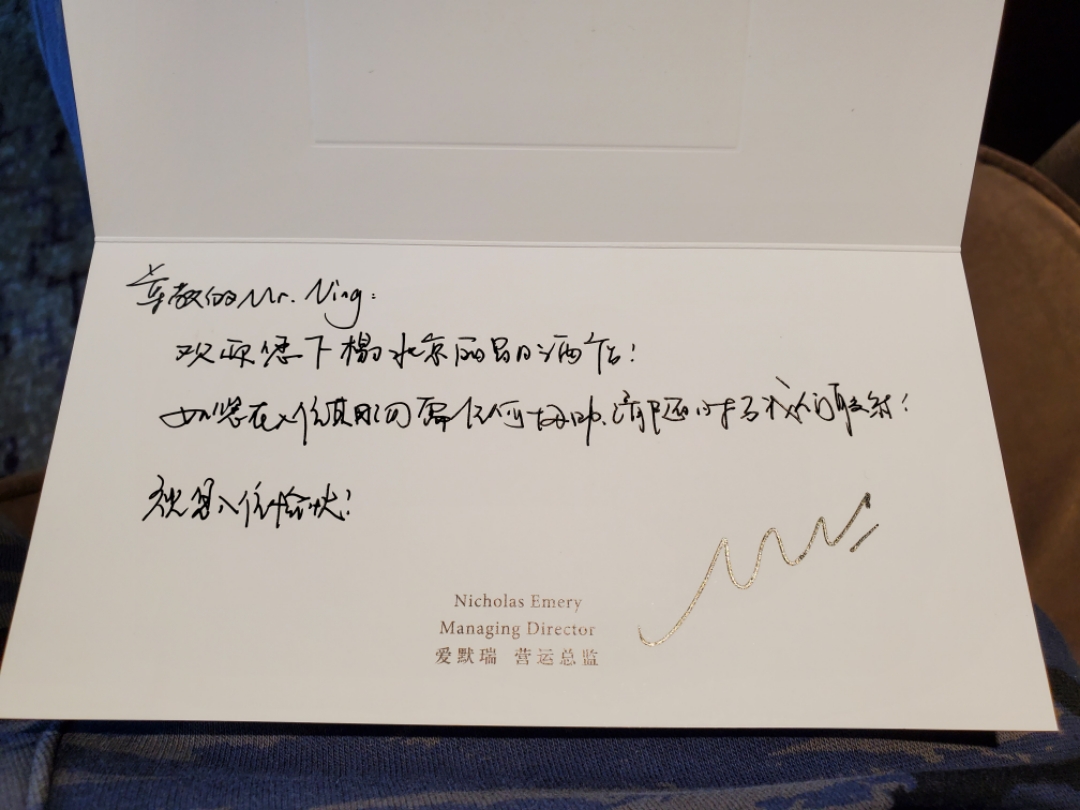 尊敬的Mr. Ning:
欢迎您下榻北京丽晶酒店!
如您在入住其间需任何帮助,请随时与我们联系!
祝您入住愉快!
Nicholas Emery
Managing Director
爱默瑞 营运总监